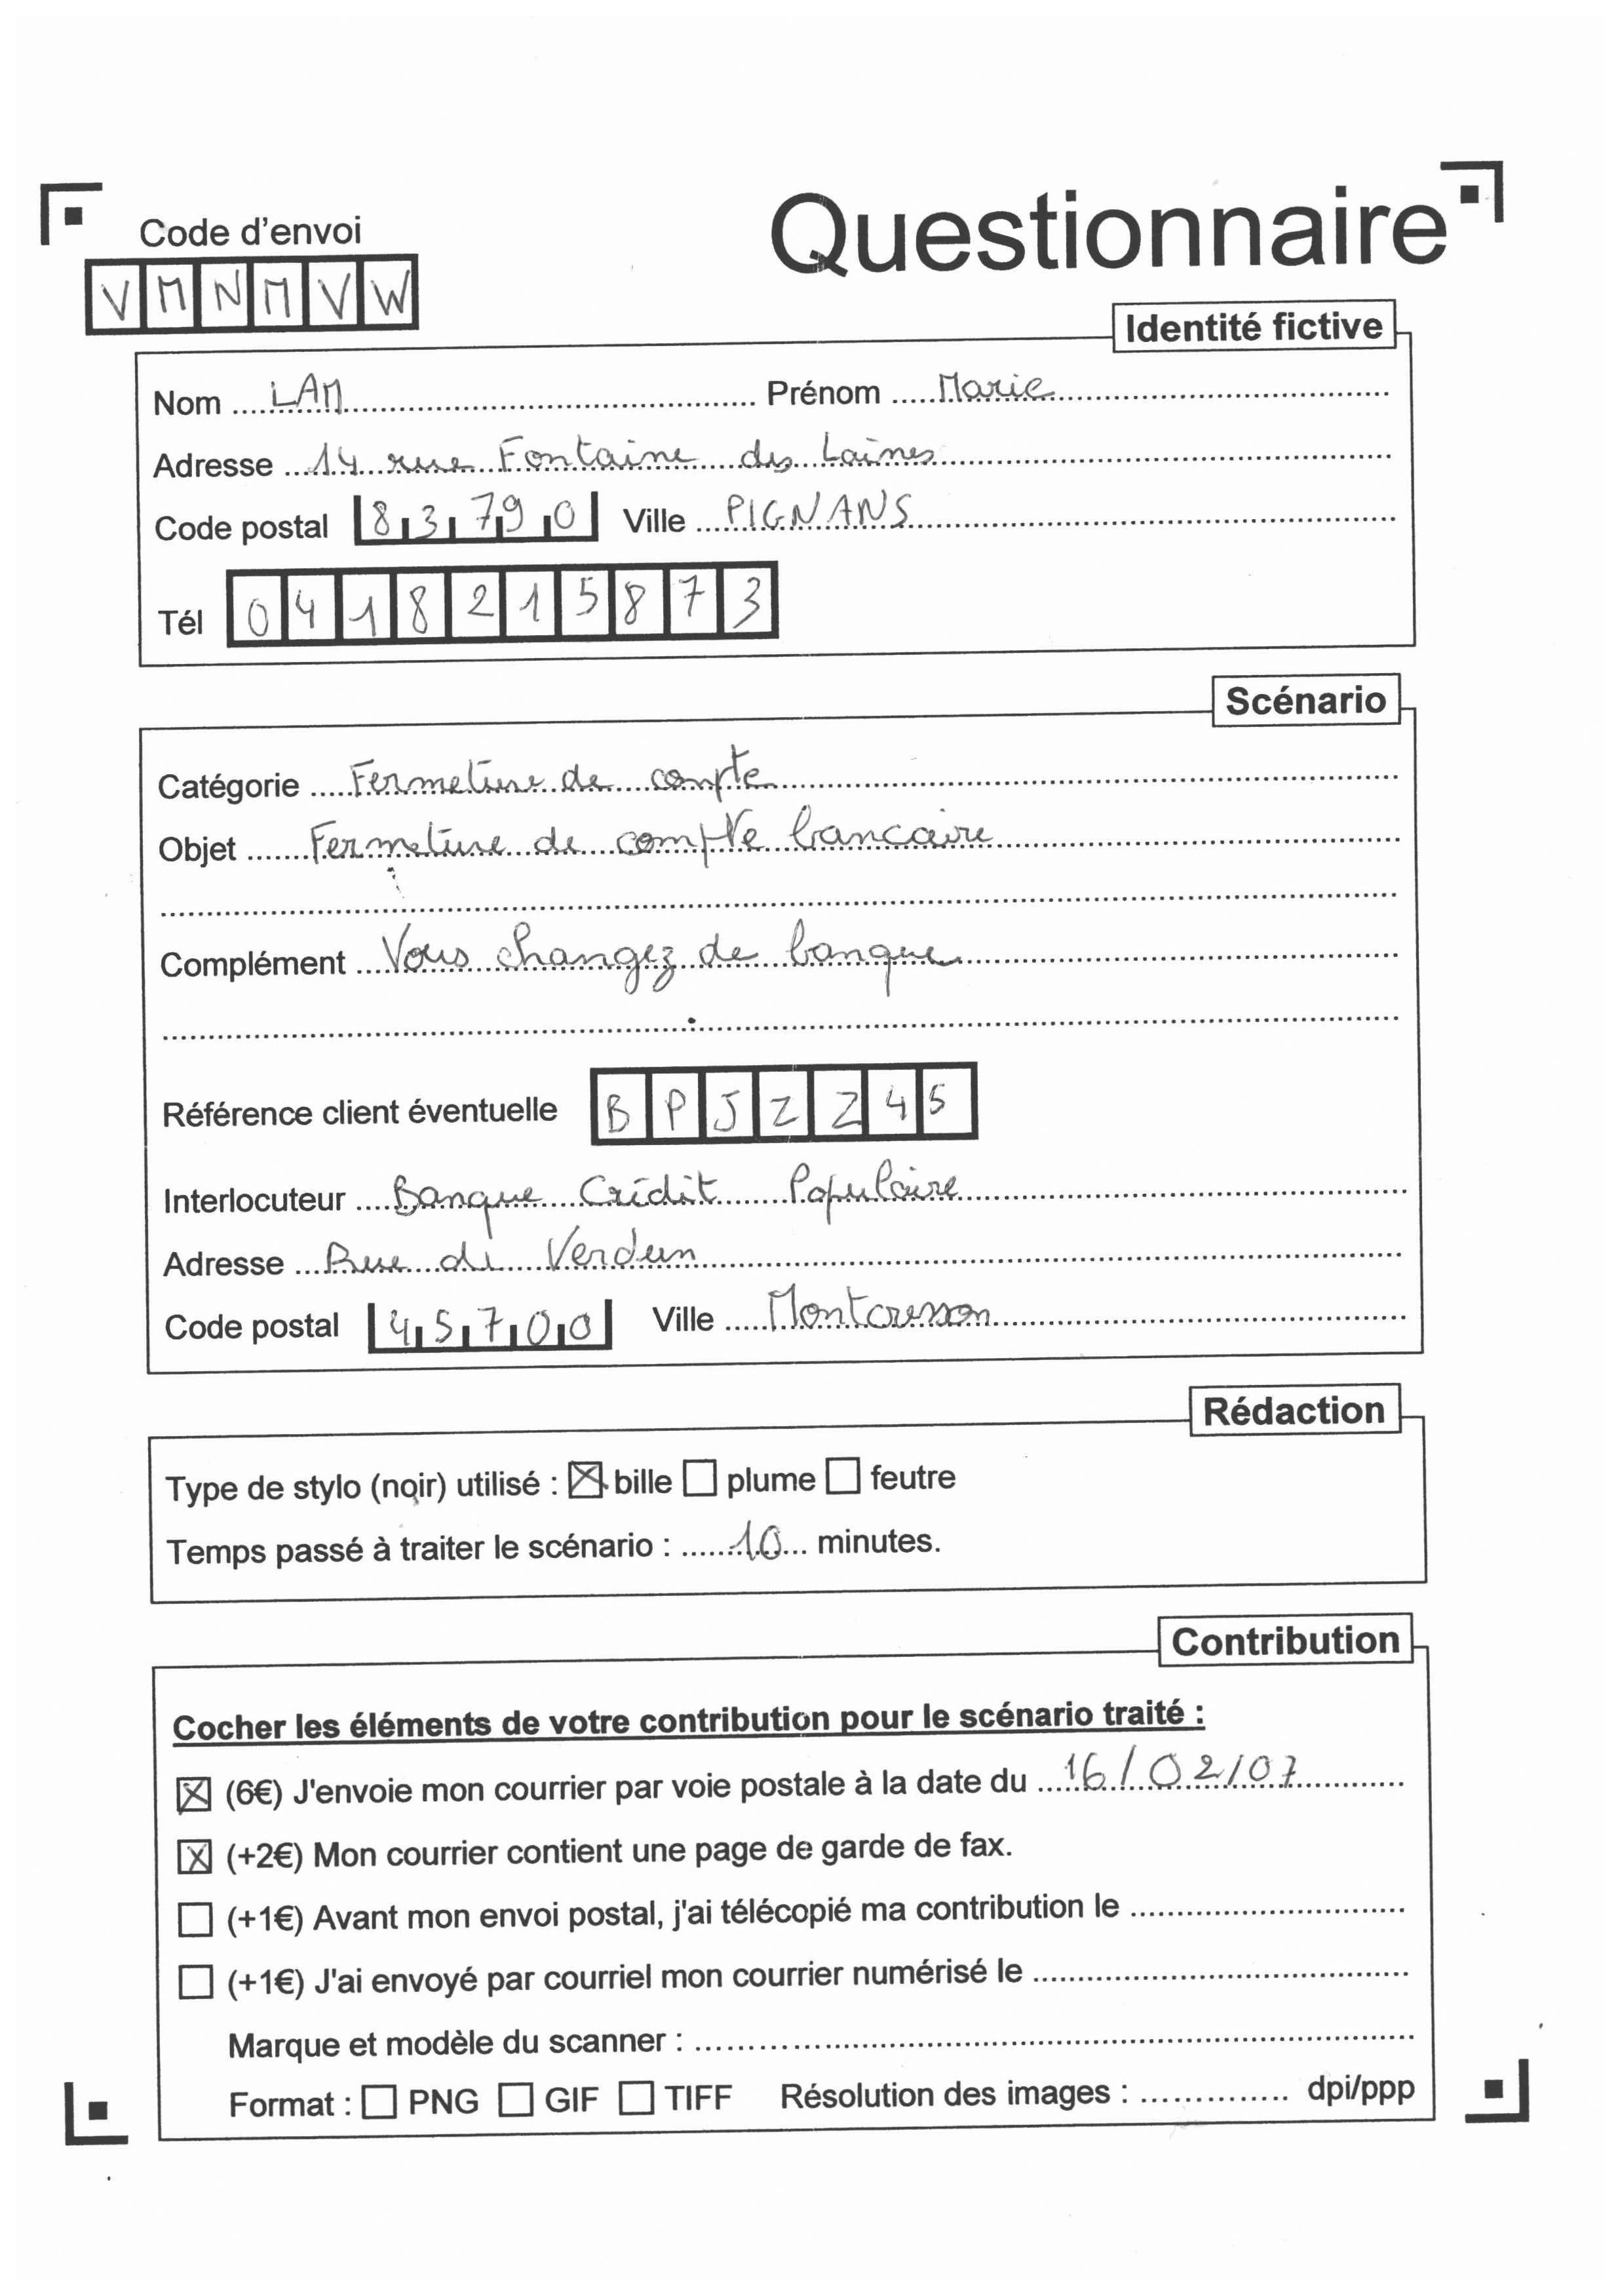 Questionnaire
Code d'envoi
VMNMVW
Identité fictive
Nom LAM Prénom Marie
Adresse 14 rue Fontaine des Laines
Code postal 83790 Ville PIGNANS
Tél 0418215873
Scénario
Catégorie Fermeture de compte
Objet Fermeture de compte bancaire
Complément Vous changez de banque
Référence client éventuelle BPJZZ45
Interlocuteur Banque Crédit Populaire
Adresse Rue de Verdun
Code postal 45700 Ville Montcresson
Rédaction
Type de stylo (noir) utilisé : ☒ bille ☐ plume ☐ feutre
Temps passé à traiter le scénario : 10 minutes.
Contribution
Cocher les éléments de votre contribution pour le scénario traité :
☒ (6€) J'envoie mon courrier par voie postale à la date du 16/02/07
☒ (+2€) Mon courrier contient une page de garde de fax.
☐ (+1€) Avant mon envoi postal, j'ai télécopié ma contribution le
☐ (+1€) J'ai envoyé par courriel mon courrier numérisé le
Marque et modèle du scanner :
Format : ☐ PNG ☐ GIF ☐ TIFF Résolution des images : dpi/ppp